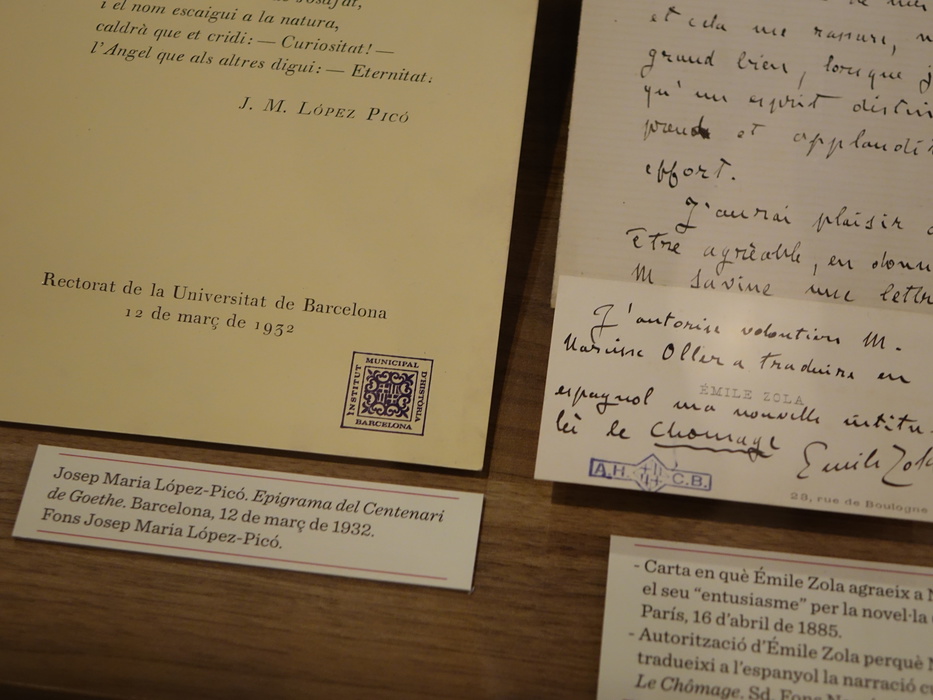 i el nom escaigui a la natura,
caldrà que et cridi: — Curiositat! —
l'Àngel que als altres digui: — Eternitat.
J. M. López Picó
Rectorat de la Universitat de Barcelona
12 de març de 1932
INSTITUT MUNICIPAL D'HISTÒRIA BARCELONA
Josep Maria López-Picó. Epigrama del Centenari
de Goethe. Barcelona, 12 de març de 1932.
Fons Josep Maria López-Picó.
et cela me rassure,
grand bien, lorsque
qu'un esprit
prend et
effort.
J'aurai plaisir
être agréable, en
M. Savine une
J'autorise volontiers M.
Narcisse Oller a traduire en
espagnol ma nouvelle intitu-
lée le Chômage
ÉMILE ZOLA
Emile Zola
A.H. C.B.
23, rue de Boulogne
- Carta en què Émile Zola agraeix a
el seu “entusiasme” per la novel·la
París, 16 d'abril de 1885.
- Autorització d'Émile Zola perquè
tradueixi a l'espanyol la narració
Le Chômage. Sd. Fons